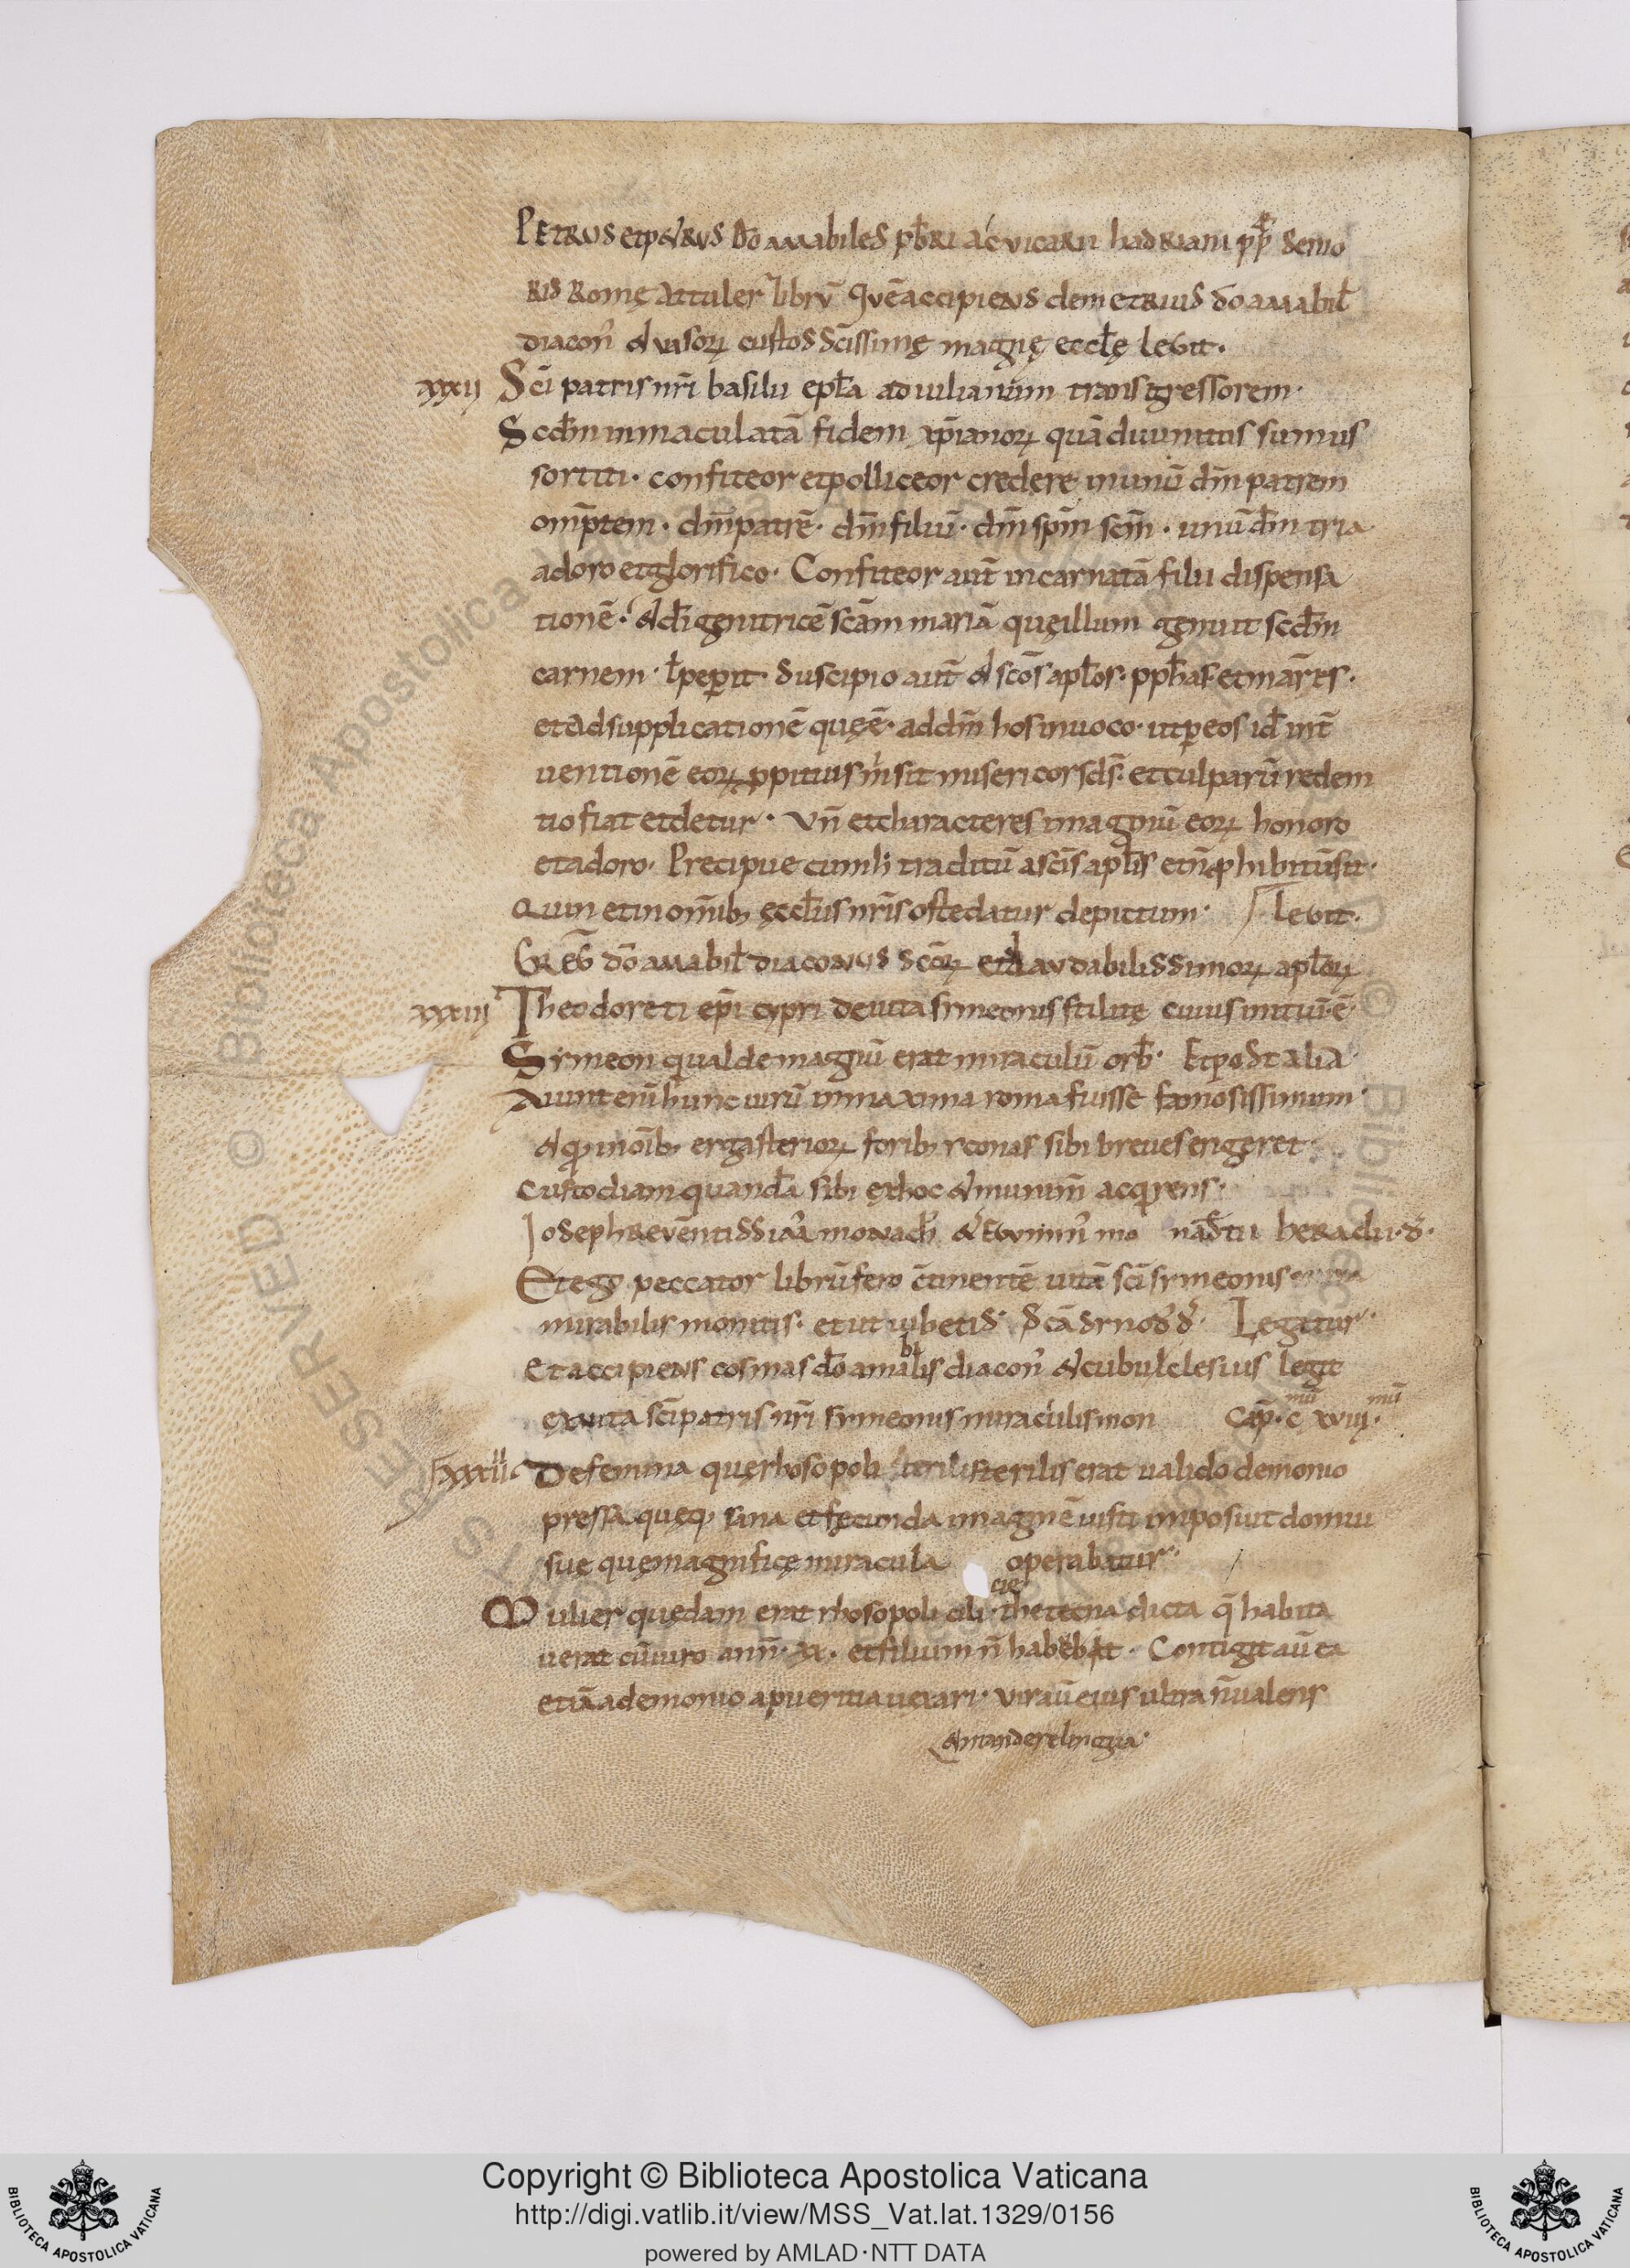 PETRUS et petRUS dō amabiles pƀRI ac vicaRII hadRiani pp̄ senio
Ris Romę attuler librū quē accipiens demetRius dō amabil
diacon̄ & vasorꝝ custos sc̄issimę magnę eccłę legit.
xxxij Sc̄i patris nr̄i basilii epła ad iulianum transgressorem.
Scd̄m inmaculatā fidem xp̄ianorꝝ quā diuinitus sumus
sortiti. confiteor et polliceor credere in unū dm̄ patrem
omp̄tem. dm̄ patrē. dm̄ filiū. dm̄ spm̄ scm̄. unū dm̄ tria
adoro et glorifico. Confiteor aut̄ incarnatā filii dispensa
tionē. & dī genitricē scām mariā quę illum genuit scdm̄
carnem. ł peperit. Suscipio aut̄ & scōs apłos. pphas et mārts.
et ad supplicationē quę ē. ad dm̄ hos inuoco. ut p eos id int̄
uentionē eorꝝ ppitius m sit misericors ds. et culparū redem
tio fiat et detur. Vn̄ et characteres imaginū eorꝝ honoro
et adoro. Precipue cum h traditū a sc̄is aplis et n̄ phibitū sit.
Quin et in omnib; ęccłiis nr̄is ostēdatur depictum. Legit.
GReḡ dō amabił diaconus scōrꝝ et laudabilissimorꝝ apłorꝝ
xxxiij Theodoreti ep̄i cypri de uita symeonis stilitę cuius initiū ē
Symeon qualde magnū erat miraculū orb. Et post alia
Aiunt enī hunc uirū in maxima roma fuisse famosissimum
& q in oīb; ergasteriorꝝ forib; yconas sibi breues erigeret.
Custodiam quandā sibi ex hoc & munim̄ acqrens.
Ioseph Reventissim monach &
Et ego peccator librū fero c̄tinentē uitā sci symeonis
mirabilis montis. et ut iubetis. Scā Synod d. Legatur.
Et accipiens cosmas dō amabilis diacon̄ & cubuclesius legit
ex uita sc̄i patris nr̄i symeonis miraculis mon Cap. c mū xviij. mū
xxxiiii De femina quę rhosopoli sterilis erat ualido demonio
pressa. quęq; sana et fęcunda imaginē iusti imposuit domui
suę quę magnificę miracula operabatur.
Mulier quędam erat rhosopoli cilicię thetecna dicta q̄ habita
uerat cū uiro ann̄. xx. et filium n̄ habebat. Contigit aū ea
etiā a demonio a pueritia uexari. Vir aū eius ultra n̄ ualens
& mandere lingua.
Copyright © Biblioteca Apostolica Vaticana
http://digi.vatlib.it/view/MSS_Vat.lat.1329/0156
powered by AMLAD·NTT DATA
BIBLIOTECA APOSTOLICA VATICANA
BIBLIOTECA APOSTOLICA VATICANA